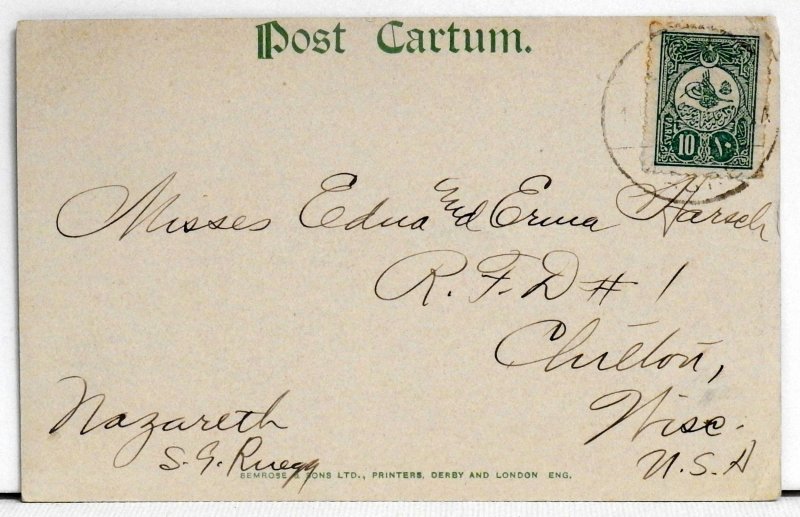 Post Cartum.
10 ١٠
Misses Edna and Erma Harsch
R.F.D # 1
Chilton,
Wisc.
U.S.A
Nazareth
S. G. Ruegg
BEMROSE & SONS LTD., PRINTERS, DERBY AND LONDON ENG.